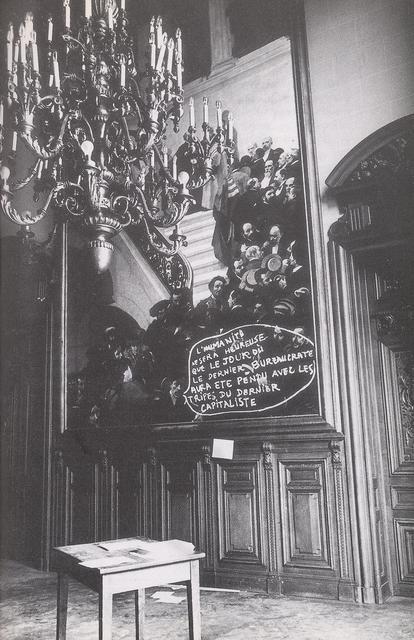 L'HUMANITÉ
NE SERA HEUREUSE
QUE LE JOUR OÙ
LE DERNIER BUREAUCRATE
AURA ETE PENDU AVEC LES
TRIPES DU DERNIER
CAPITALISTE